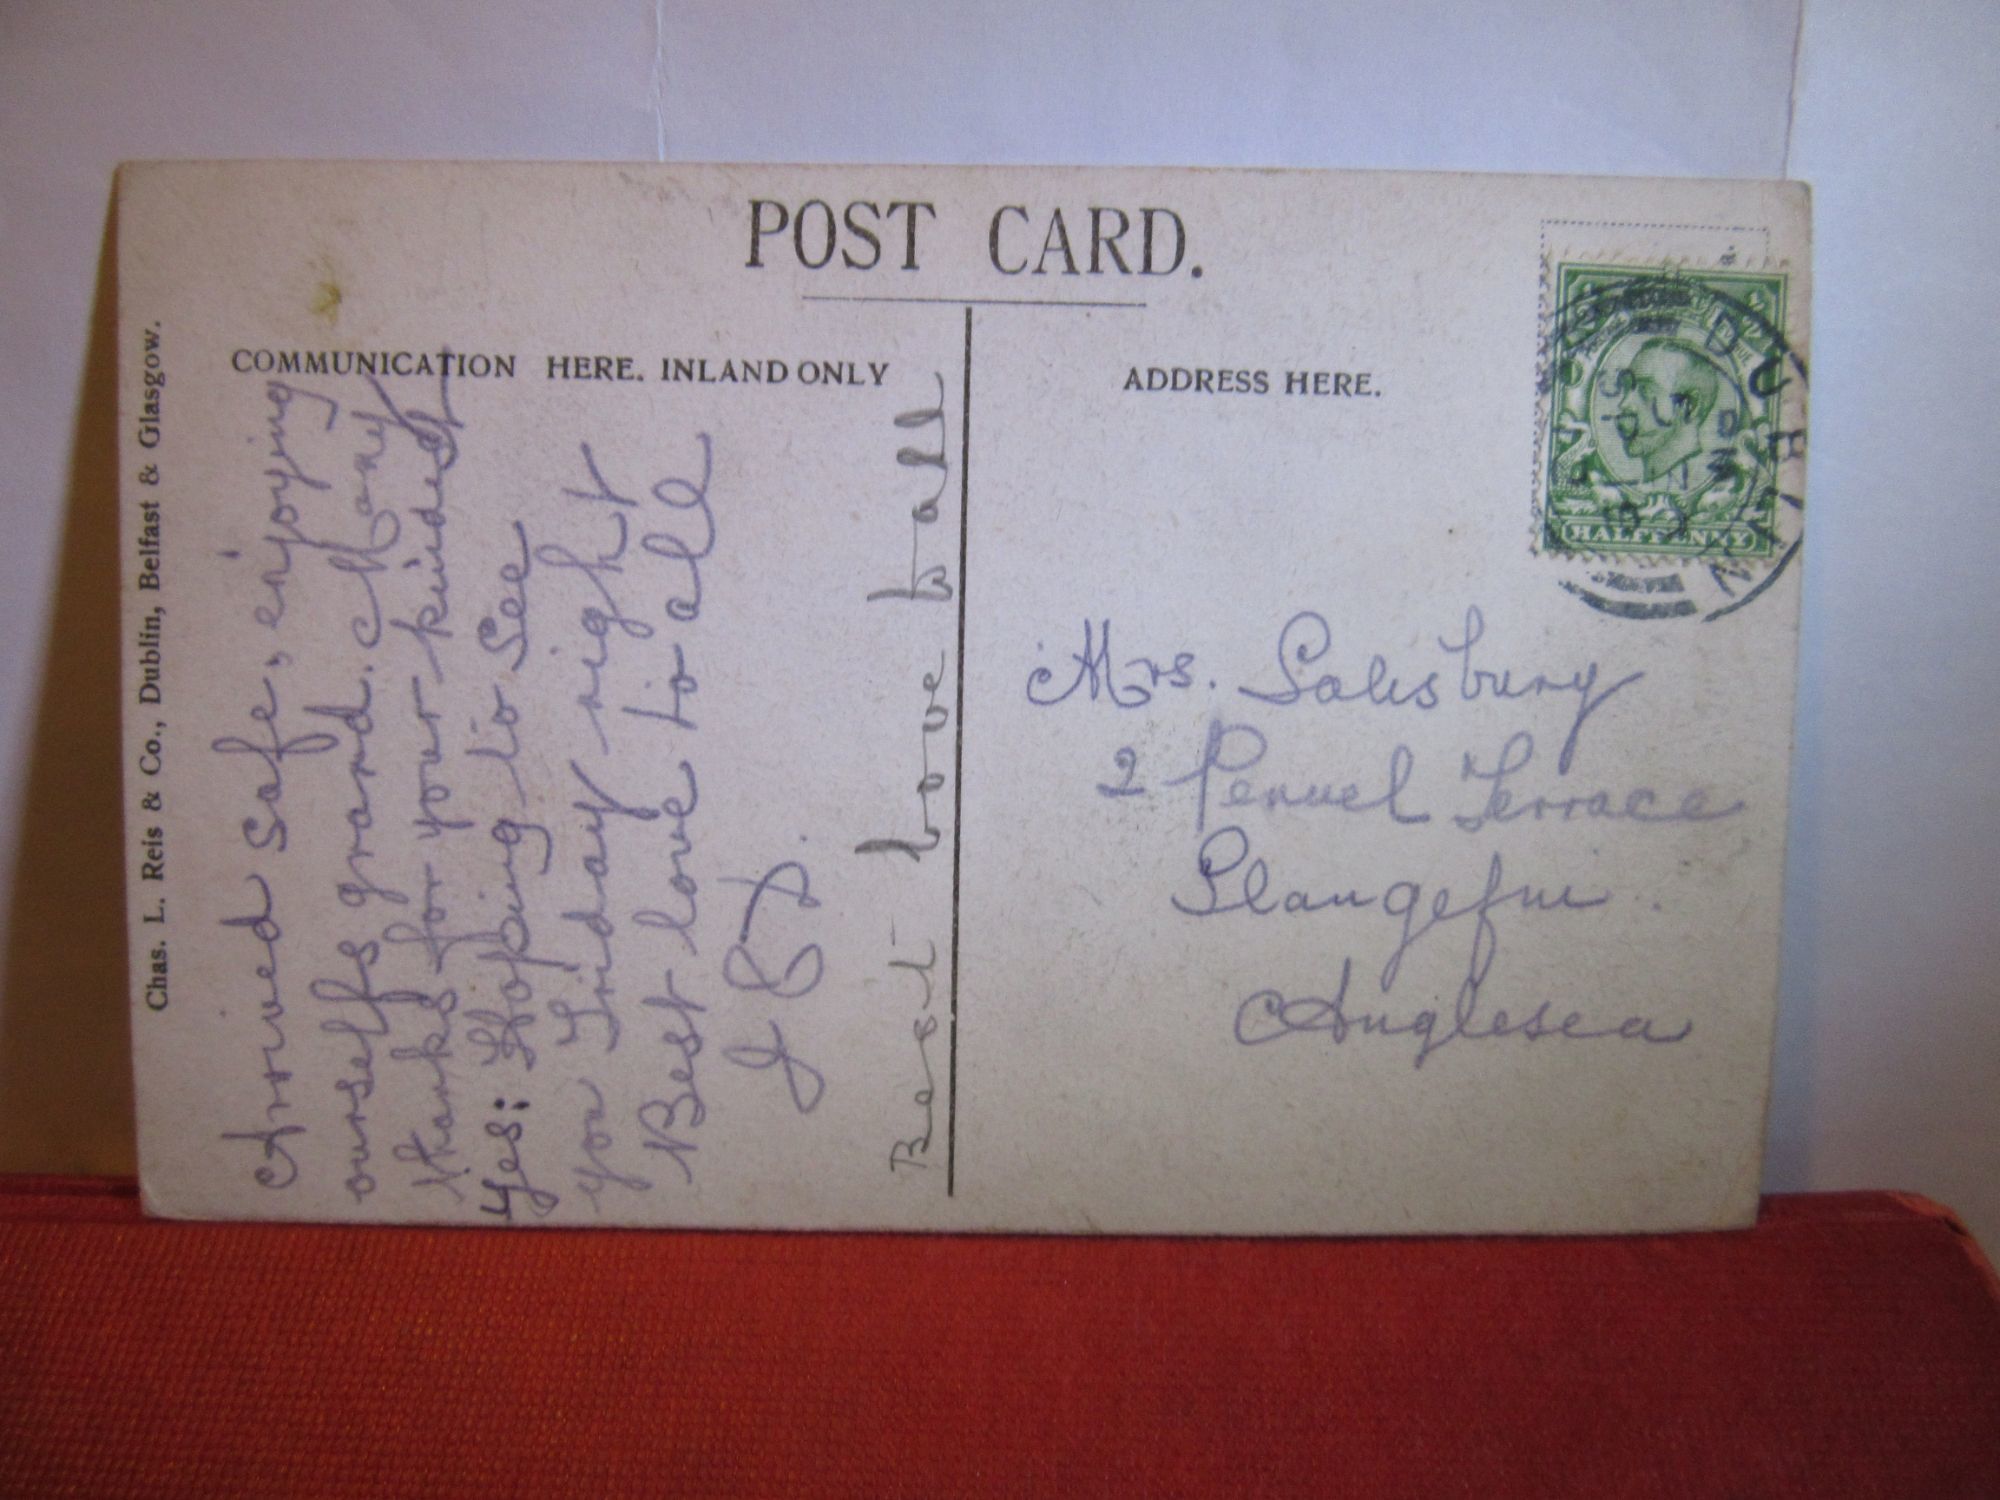 POST CARD.
COMMUNICATION HERE. INLAND ONLY
ADDRESS HERE.
Chas. L. Reis & Co., Dublin, Belfast & Glasgow.
Arrived safe, enjoying
ourselfs grand. Many
thanks for your kindest
yes: Hopeing to see
you Friday night
Best love to all
Best love to all
Mrs. Salisbury
2 Penuel Terrace
Llangefni
Anglesea
DUBLIN
HALFPENNY